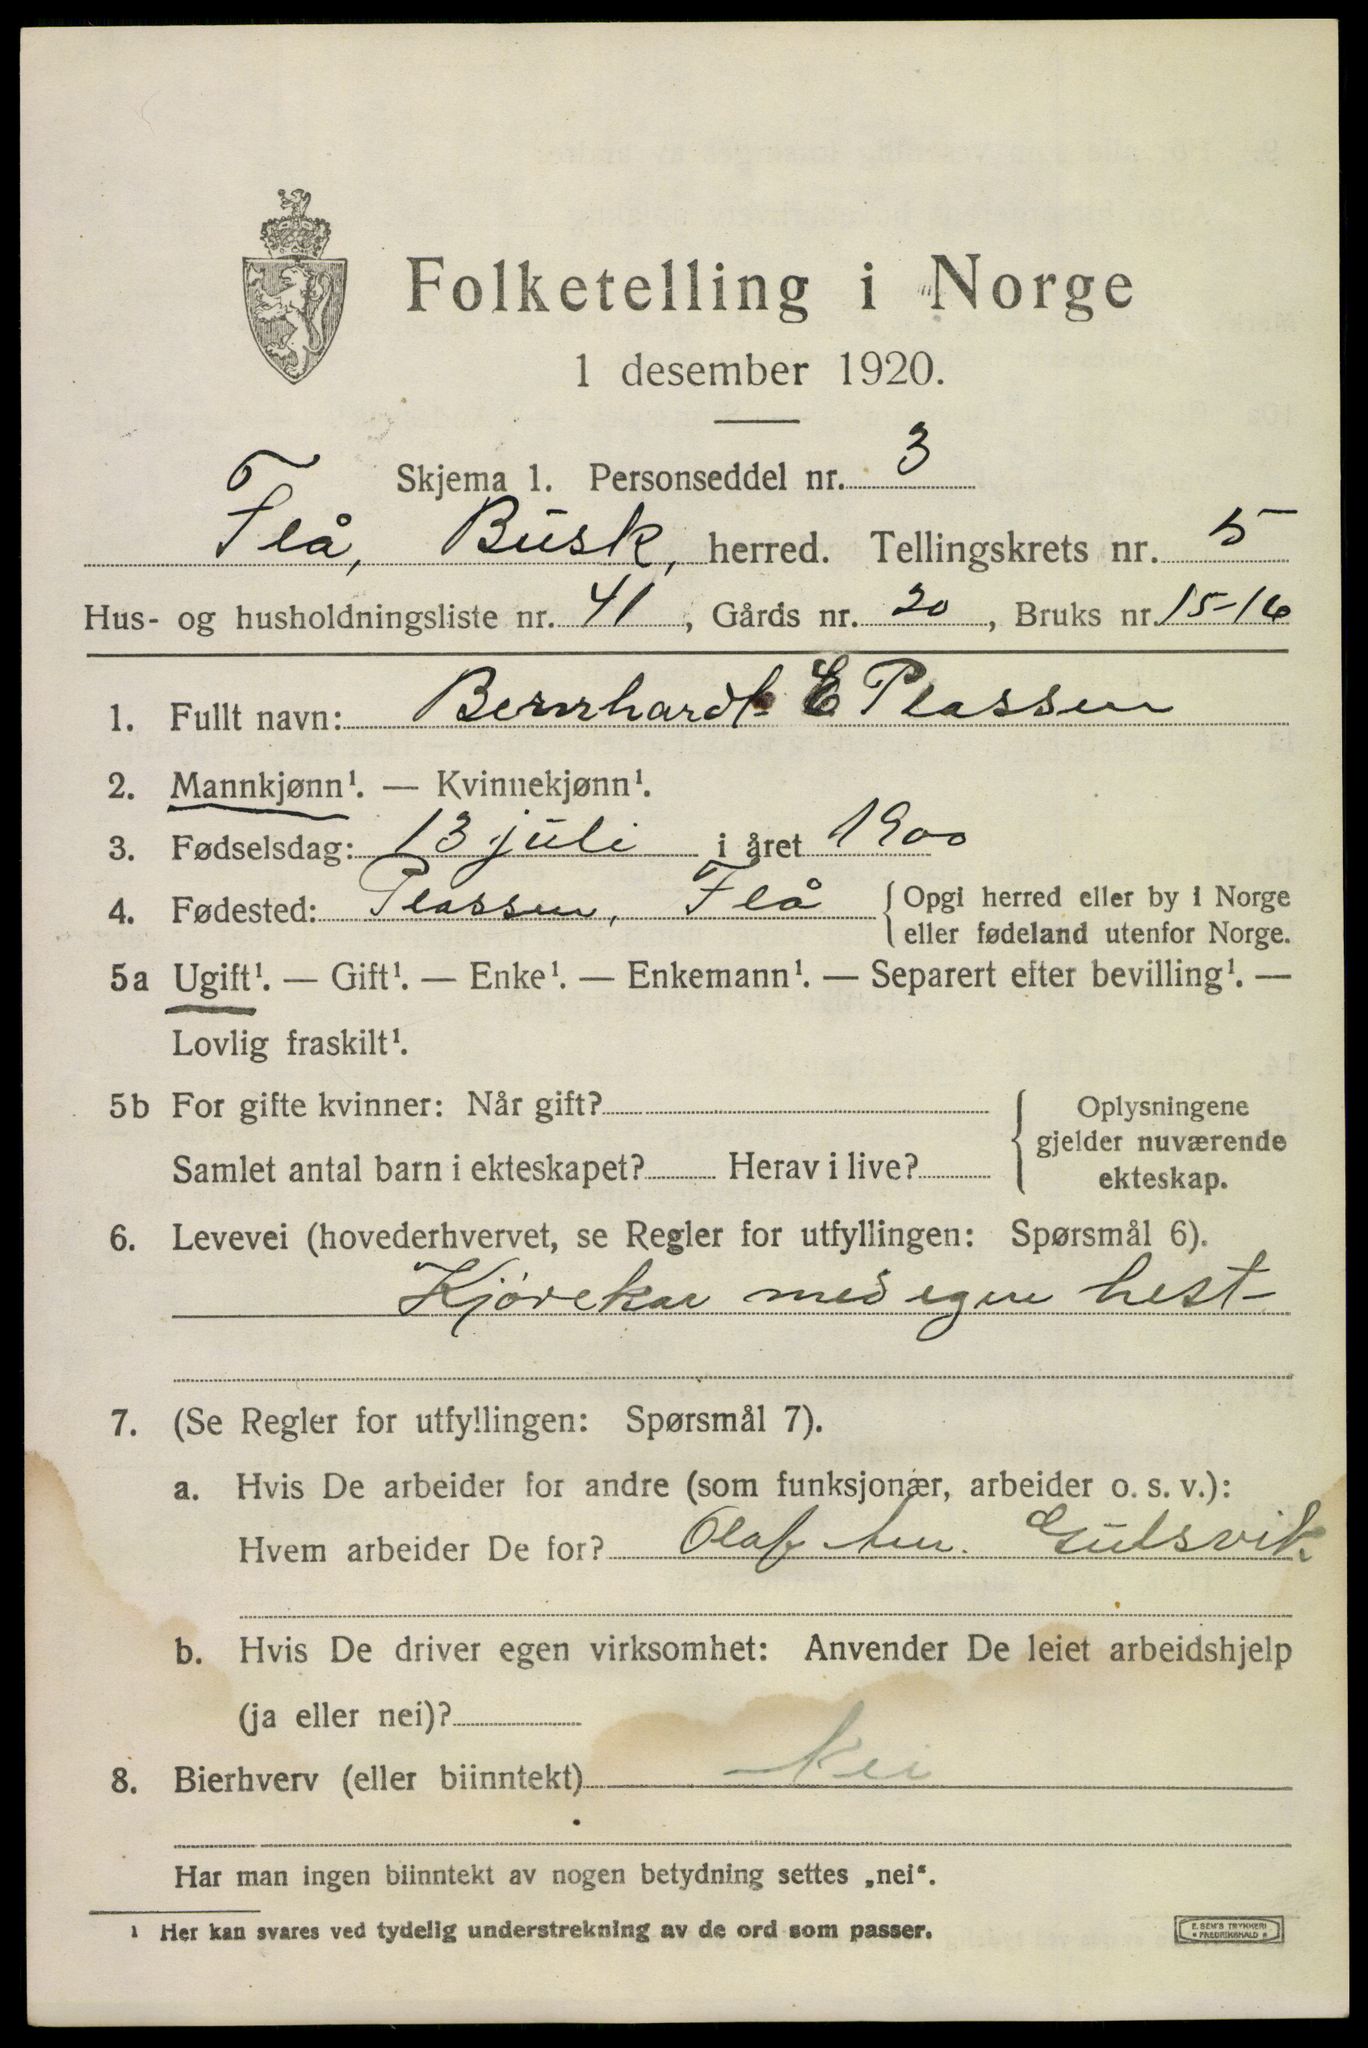 Folketelling i Norge
1 desember 1920.
Skjema 1. Personseddel nr. 3
Flå, Busk, herred. Tellingskrets nr. 5
Hus- og husholdningsliste nr. 41, Gårds nr. 20, Bruks nr. 15-16
1. Fullt navn: Bernhard E Plassen
2. Mannkjønn¹. — Kvinnekjønn¹.
3. Fødselsdag: 13 juli i året 1900
4. Fødested: Plassen, Flå { Opgi herred eller by i Norge
eller fødeland utenfor Norge.
5a Ugift¹. — Gift¹. — Enke¹. — Enkemann¹. — Separert efter bevilling¹. —
Lovlig fraskilt¹.
5b For gifte kvinner: Når gift?
Samlet antal barn i ekteskapet? Herav i live?
Oplysningene
gjelder nuværende
ekteskap.
6. Levevei (hovederhvervet, se Regler for utfyllingen: Spørsmål 6).
Kjørekar med egen hest
7. (Se Regler for utfyllingen: Spørsmål 7).
a. Hvis De arbeider for andre (som funksjonær, arbeider o. s. v.):
Hvem arbeider De for? Olaf Gulsvik.
b. Hvis De driver egen virksomhet: Anvender De leiet arbeidshjelp
(ja eller nei)?
8. Bierhverv (eller biinntekt) Nei
Har man ingen biinntekt av nogen betydning settes „nei“.
¹ Her kan svares ved tydelig understrekning av de ord som passer.
E. SEM'S TRYKKERI
FREDRIKSHALD